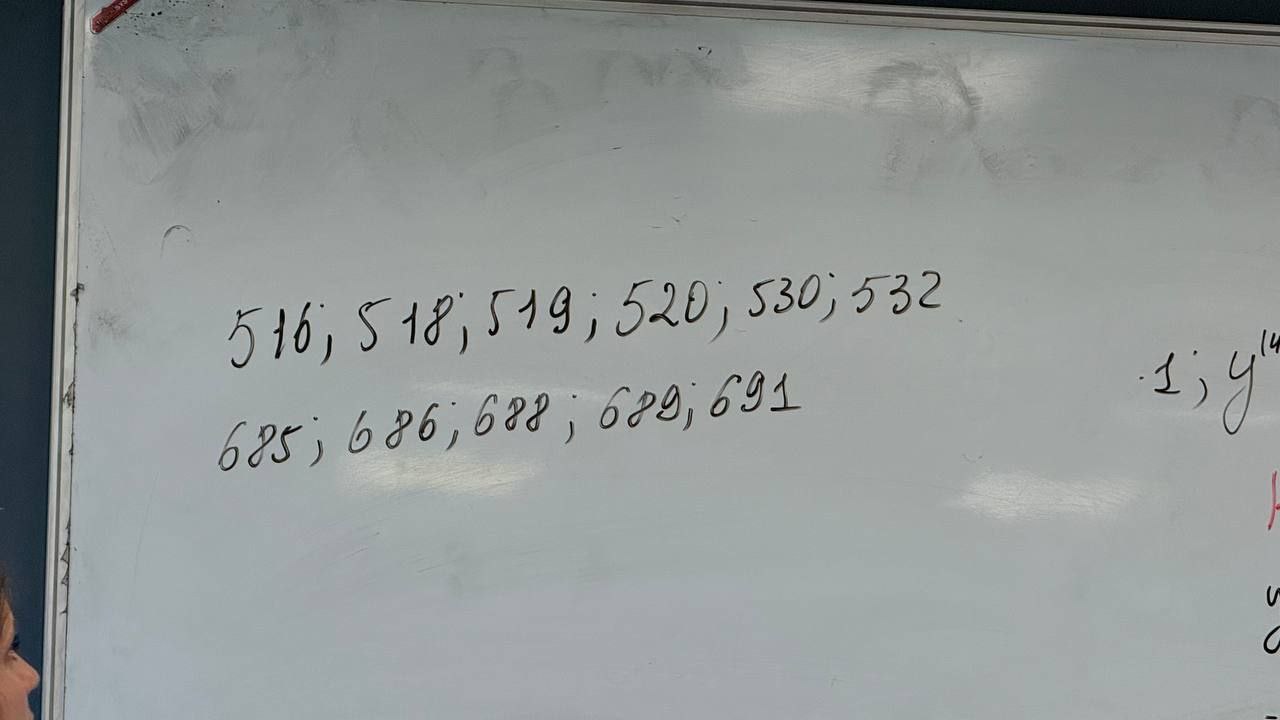 516; 518; 519; 520; 530; 532
685; 686; 688; 689; 691
1; y